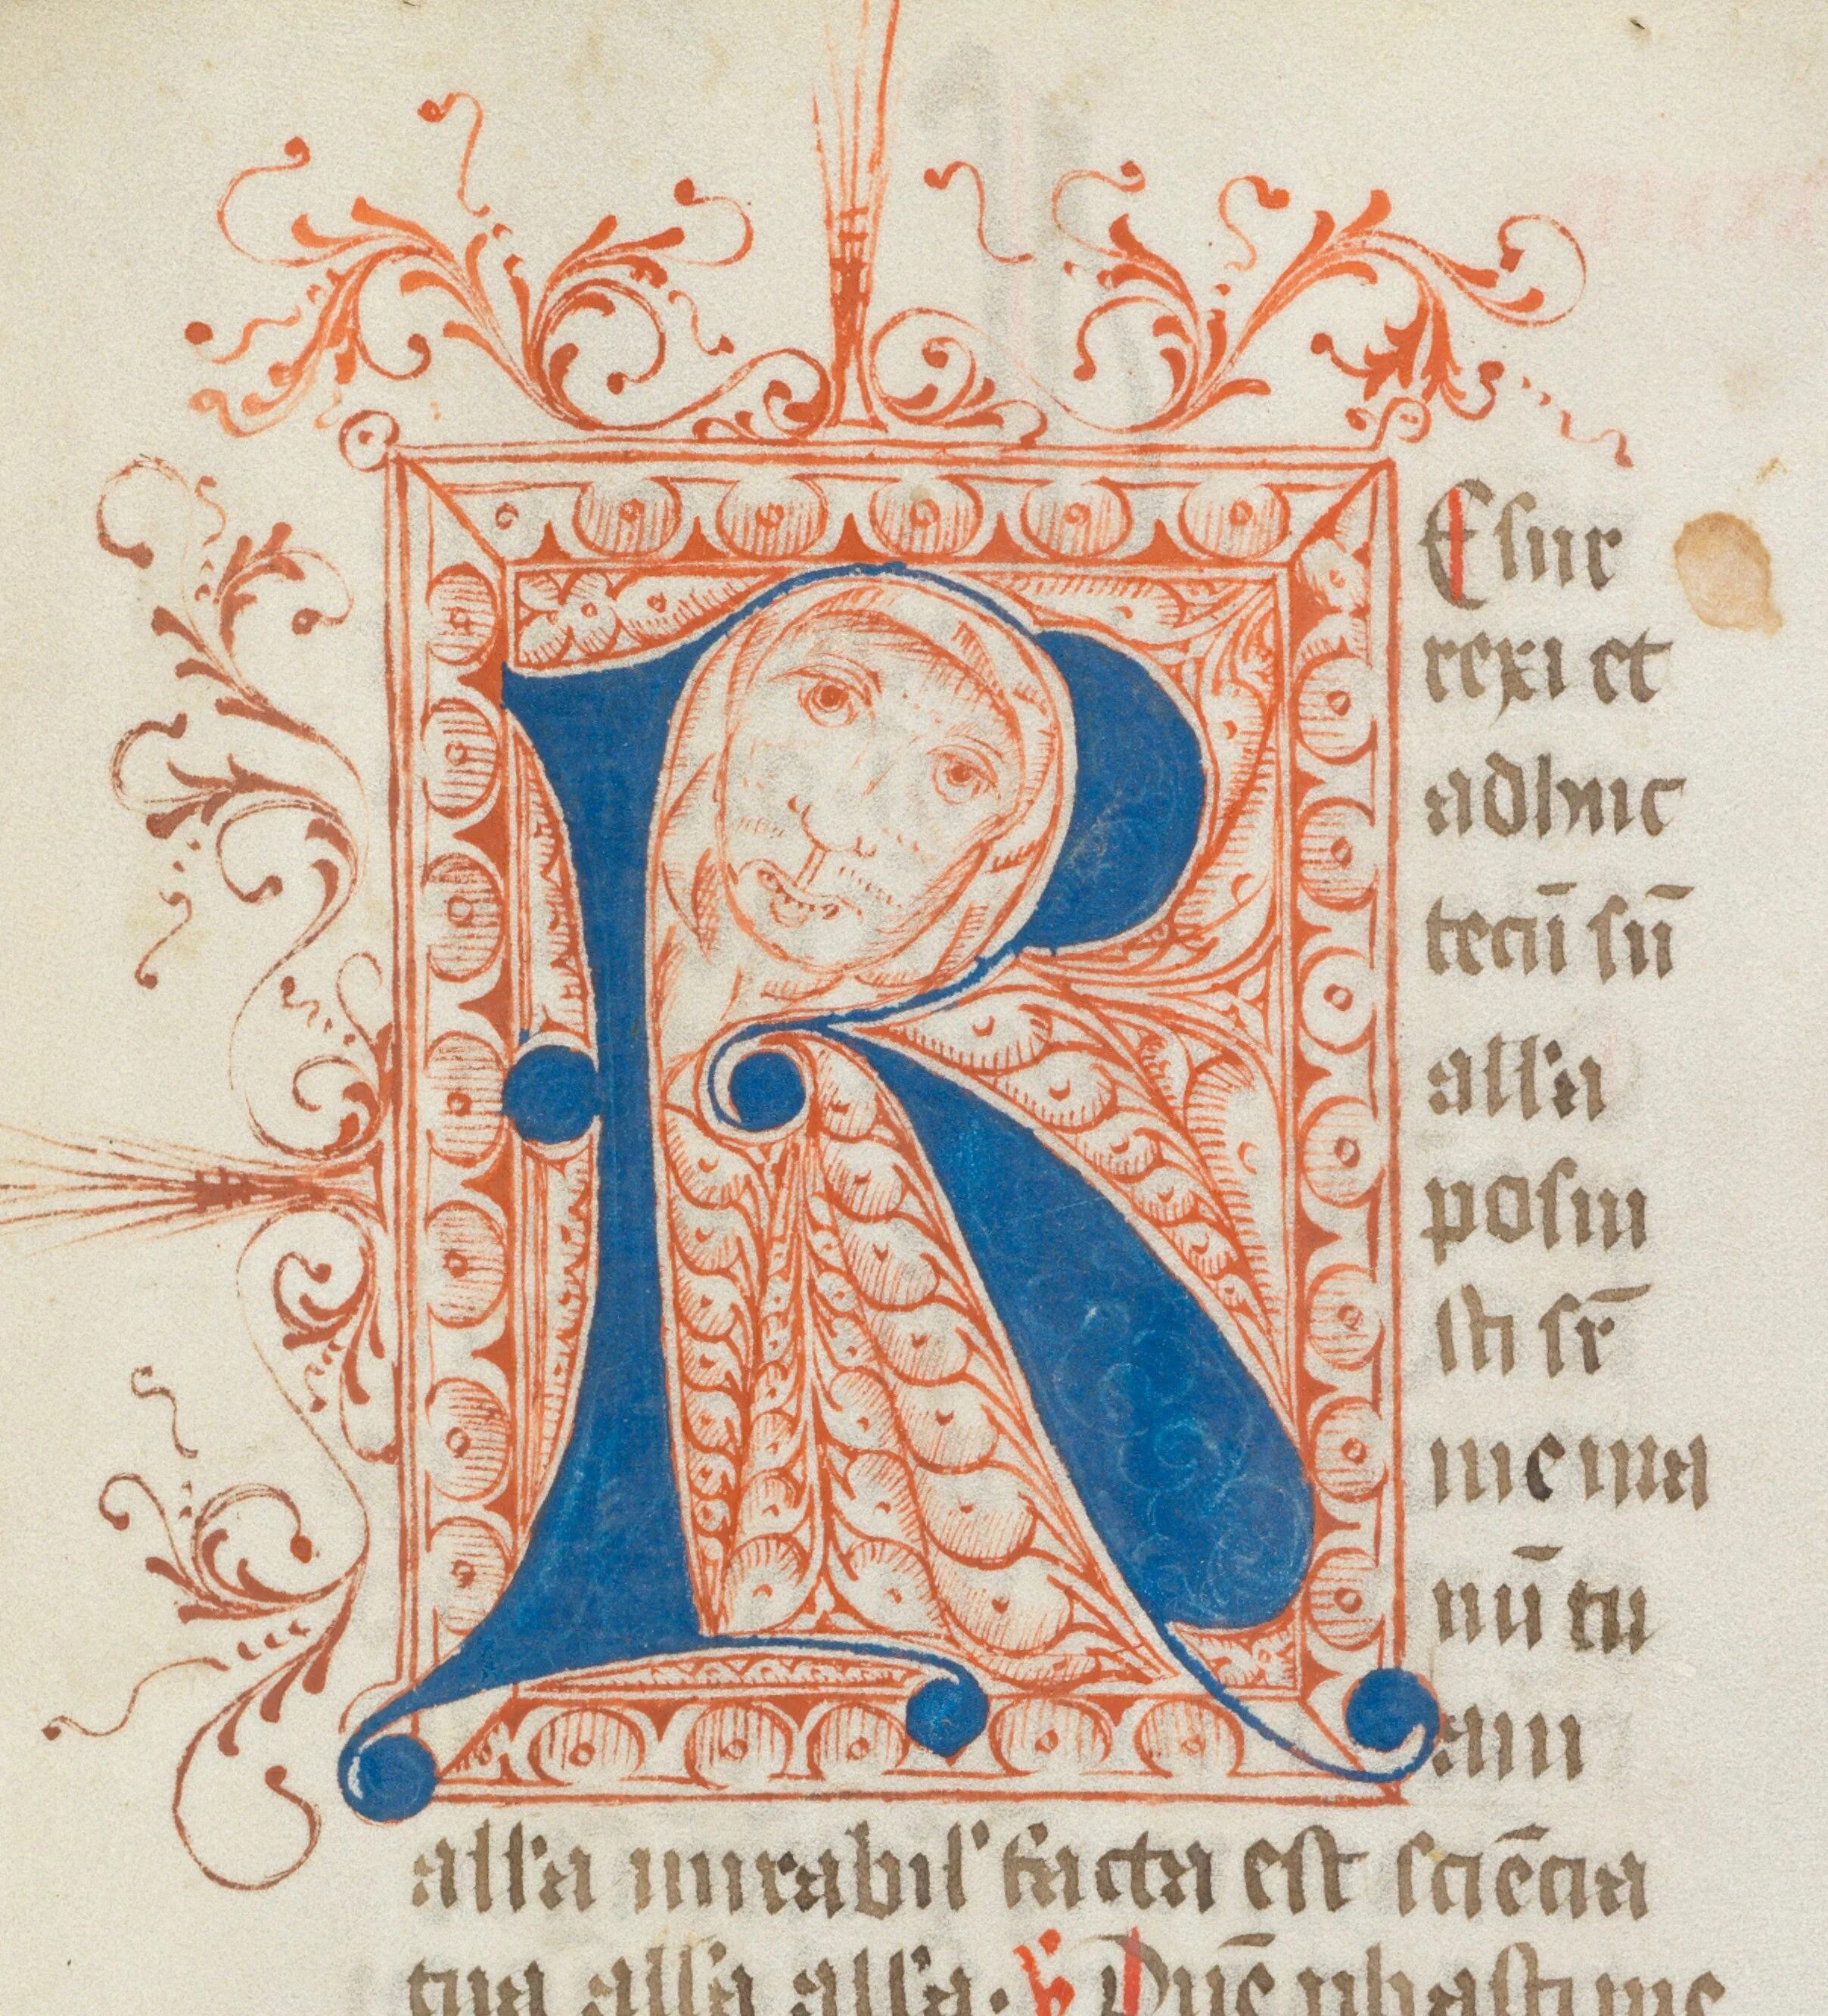 R Esur
rexi et
adhuc
tecū sū
all'a
posui
sti sr̄
me ma
nū tu
am
all'a mirabil' facta est sciēcia
tua all'a all'a. Dn̄e ꝓbasti me